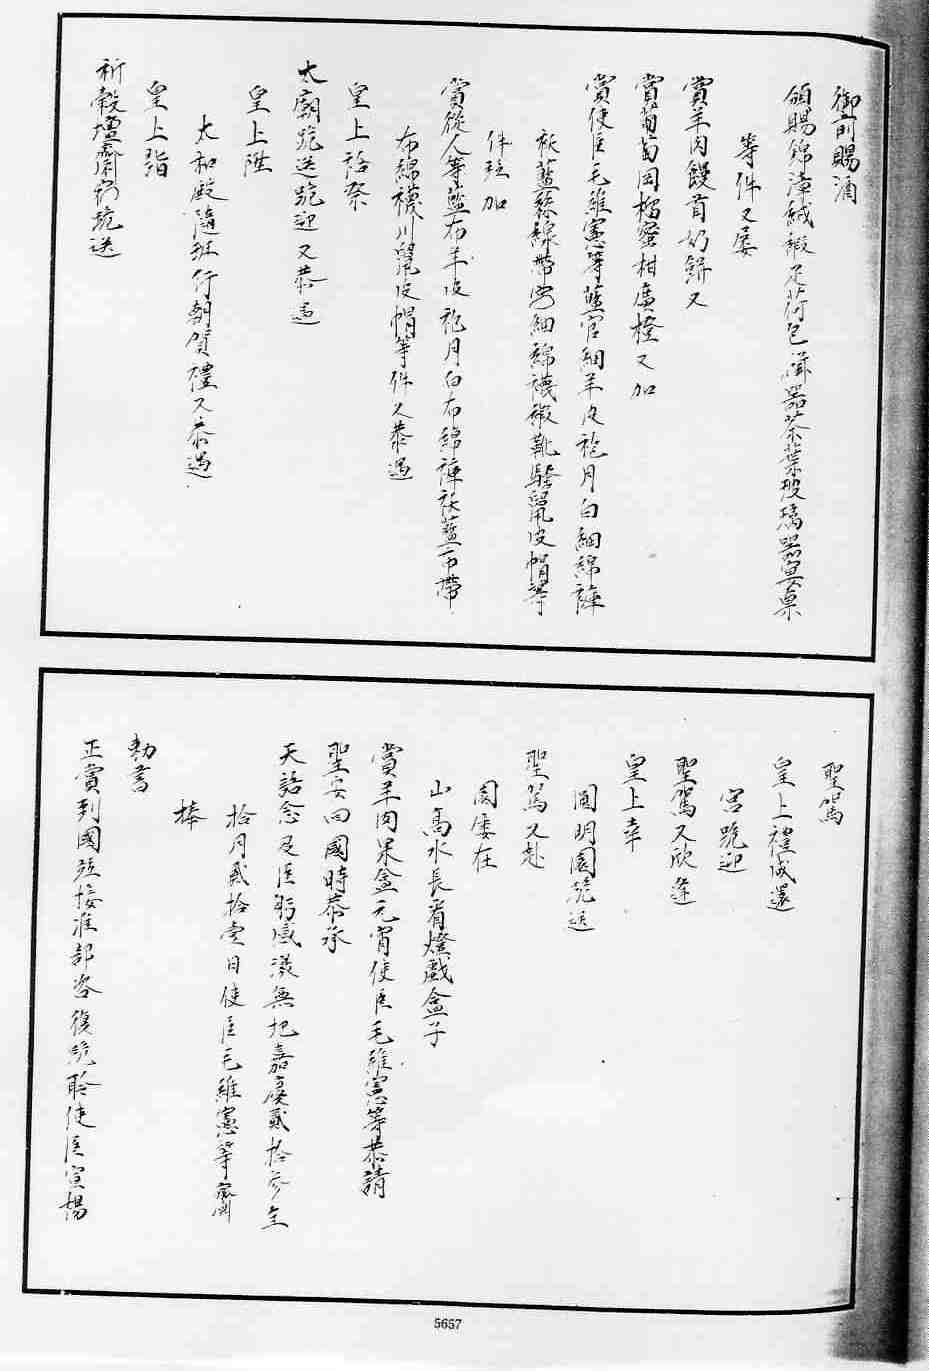 御前賜酒
頒賜錦漳絨緞疋荷包磁器茶葉玻璃器皿桌
等件又屢
賞羊肉饅首奶餅又
賞葡萄岡榴蜜柑廣橙又加
賞使臣毛維憲等藍官細羊皮袍月白細綿褲
袄藍絲線帶安細綿襪緞靴騷鼠皮帽等
件確加
賞從人等藍布羊皮袍月白布綿褲袄藍布帶
布綿襪川鼠皮帽等件又恭遇
皇上詣祭
太廟跪送跪迎又恭遇
皇上陞
太和殿隨班行朝賀禮又恭遇
皇上詣
祈穀壇齋宿跪送
聖駕
皇上禮成還
宮跪迎
聖駕又欣逢
皇上幸
圓明園跪送
聖駕又赴
園屢在
山高水長看燈戲盒子
賞羊肉果盒元宵使臣毛維憲等恭請
聖安回國時恭承
天語念及臣躬感激無地嘉慶貳拾參年
拾月貳拾壹日使臣毛維憲等齎
捧
勅書
正賞到國並接准部咨復跪聆使臣宣揚
5657